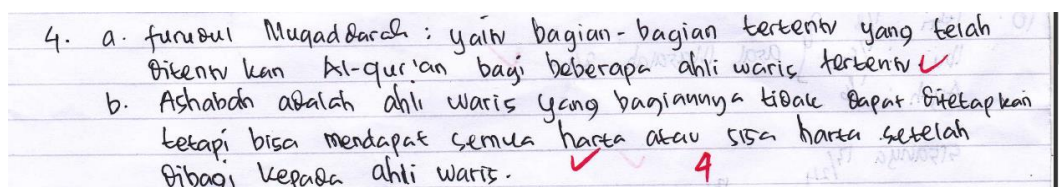 4. a. furudul Muqaddarah : yaitu bagian-bagian tertentu yang telah
ditentu kan Al-qur'an bagi beberapa ahli waris tertentu
b. Ashabah adalah ahli waris yang bagiannya tidak dapat ditetapkan
tetapi bisa mendapat semua harta atau sisa harta setelah
dibagi kepada ahli waris.
4